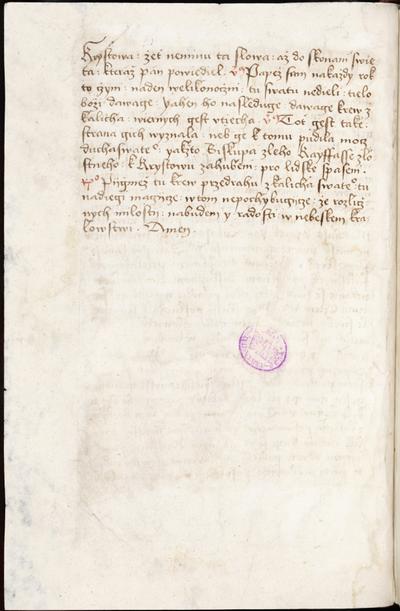 Krystowa : zet neminu ta slowa : až do skonani swie
ta : kteraž pan powiediel . Papež sam nakazdy rok
to czym : naden welikonoczni : tu swatu nedieli : tielo
boži dawage : yahen ho nasleduge : dawage krew z
kalicha : wiernych gest utiecha . Tot gest take
strana gich wyznala : neb ge k tomu pudila mocz
duchaswate° : yakžto Biskupa zleho Kayffasse zlo
stneho : k Krystowu zahubeni : pro lidske spaseni .
Pijgmež tu krew przedrahu z kalicha swate° : tu
nadiegi magicze : w tom nepochybugicze : že rozlicz
nych milosti : nabudem y radosti : w nebeskem kra
lowstwi . Amen .